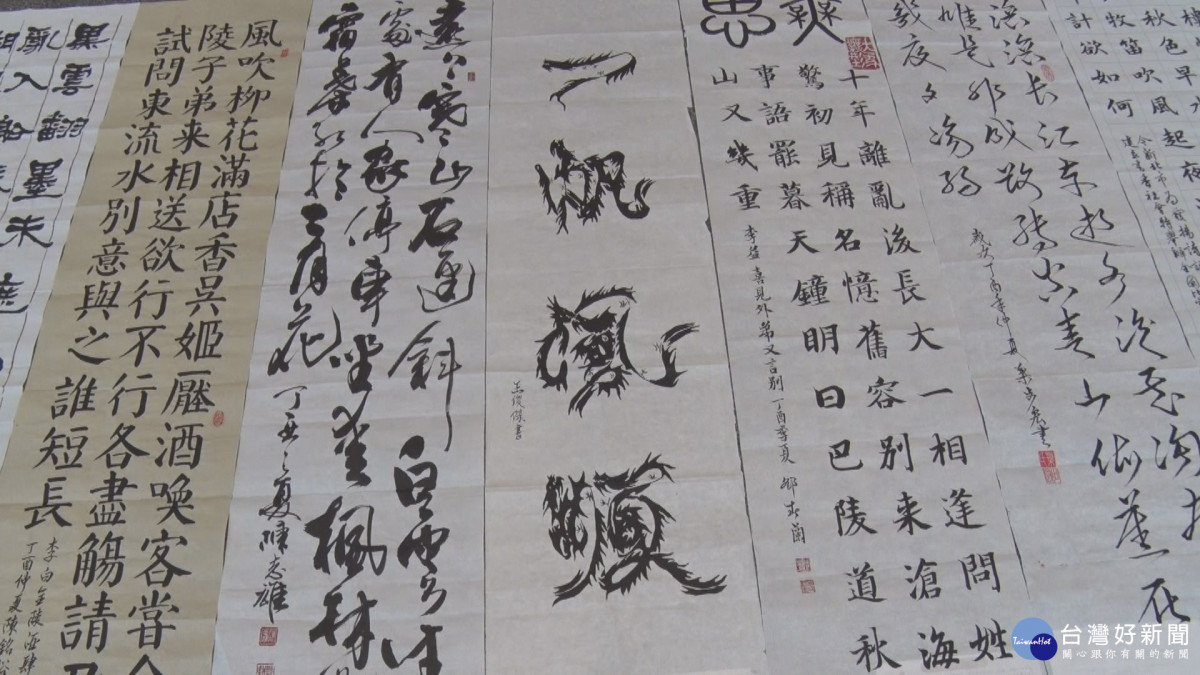 秋色早
牧笛吹風起夜
計欲如何
滾滾長江東逝水浪花淘
雄是非成敗轉頭空青山依舊在
幾度夕陽紅
十年離亂後長大一相逢問姓
驚初見稱名憶舊容別来滄海
事語罷暮天鐘明日巴陵道秋
山又幾重
李益喜見外弟又言別丁酉季夏
一帆風順
遠上寒山石逕斜白雲生
處有人家停車坐愛楓林
霜葉紅於二月花
丁酉之夏陳志雄
風吹柳花滿店香吳姬壓酒喚客嘗
陵子弟来相送欲行不行各盡觴請
試問東流水別意與之誰短長
李白金陵酒肆
丁酉仲夏陳銘
黑雲翻墨未遮
亂入船
TaiwanHot
台灣好新聞
關心跟你有關的新聞